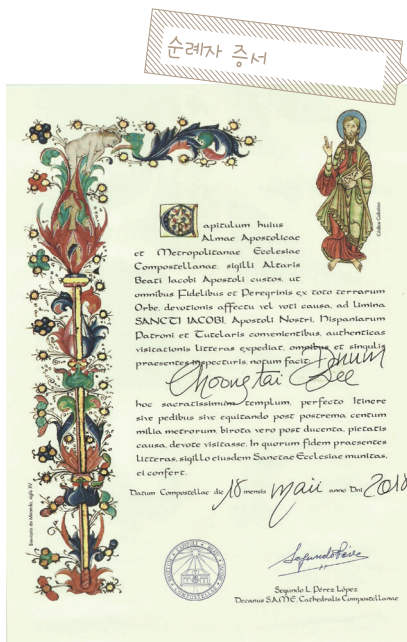 순례자 증서
Capitulum huius
Almae Apostolicae
et Metropolitanae Ecclesiae
Compostellanae, sigilli Altaris
Beati Iacobi Apostoli custos, ut
omnibus Fidelibus et Peregrinis ex toto terrarum
Orbe, devotionis affectu vel voti causa, ad limina
SANCTI IACOBI, Apostoli Nostri, Hispaniarum
Patroni et Tutelaris convenientibus, authenticas
visitationis litteras expediat, omnibus et singulis
praesentes inspecturis, notum facit: Dnum
Choongtai Lee
hoc sacratissimum templum, perfecto itinere
sive pedibus sive equitando post postrema centum
milia metrorum, birota vero post ducenta, pietatis
causa, devote visitasse. In quorum fidem praesentes
litteras, sigillo eiusdem Sanctae Ecclesiae munitas,
ei confert.
Datum Compostellae die 18 mensis maii anno Dni 2018
Segundo L. Pérez López
Decanus S.A.M.E. Cathedralis Compostellanae
Breviario de Miranda, siglo XV
Códice Calixtino